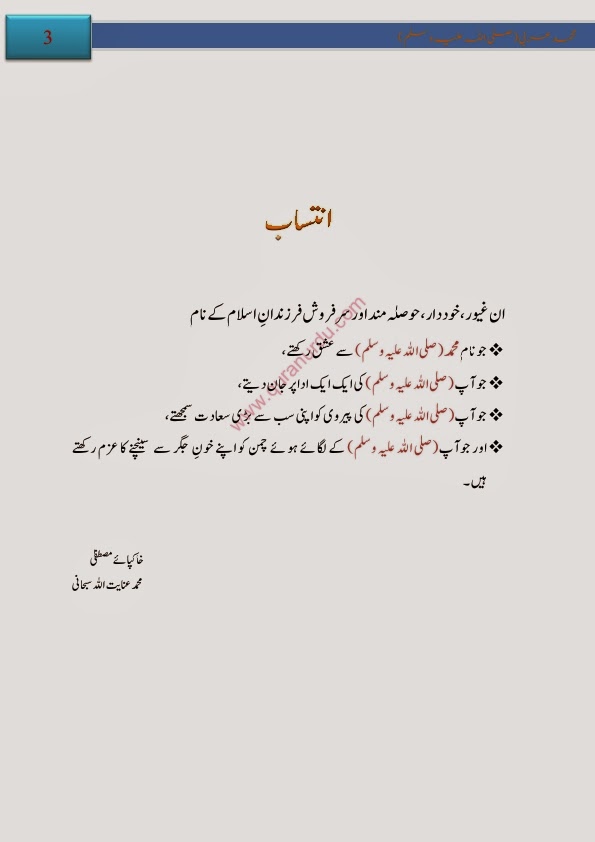 3
محمد عربی (صلی اللہ علیہ وسلم)
انتساب
ان غیور، خوددار، حوصلہ مند اور سرفروش فرزندانِ اسلام کے نام
❖ جو نام محمد (صلی اللہ علیہ وسلم) سے عشق رکھتے،
❖ جو آپ (صلی اللہ علیہ وسلم) کی ایک ایک ادا پر جان دیتے،
❖ جو آپ (صلی اللہ علیہ وسلم) کی پیروی کو اپنی سب سے بڑی سعادت سمجھتے،
❖ اور جو آپ (صلی اللہ علیہ وسلم) کے لگائے ہوئے چمن کو اپنے خونِ جگر سے سینچنے کا عزم رکھتے
ہیں۔
خاکپائے مصطفٰی
محمد عنایت اللہ سبحانی
www.quranurdu.com